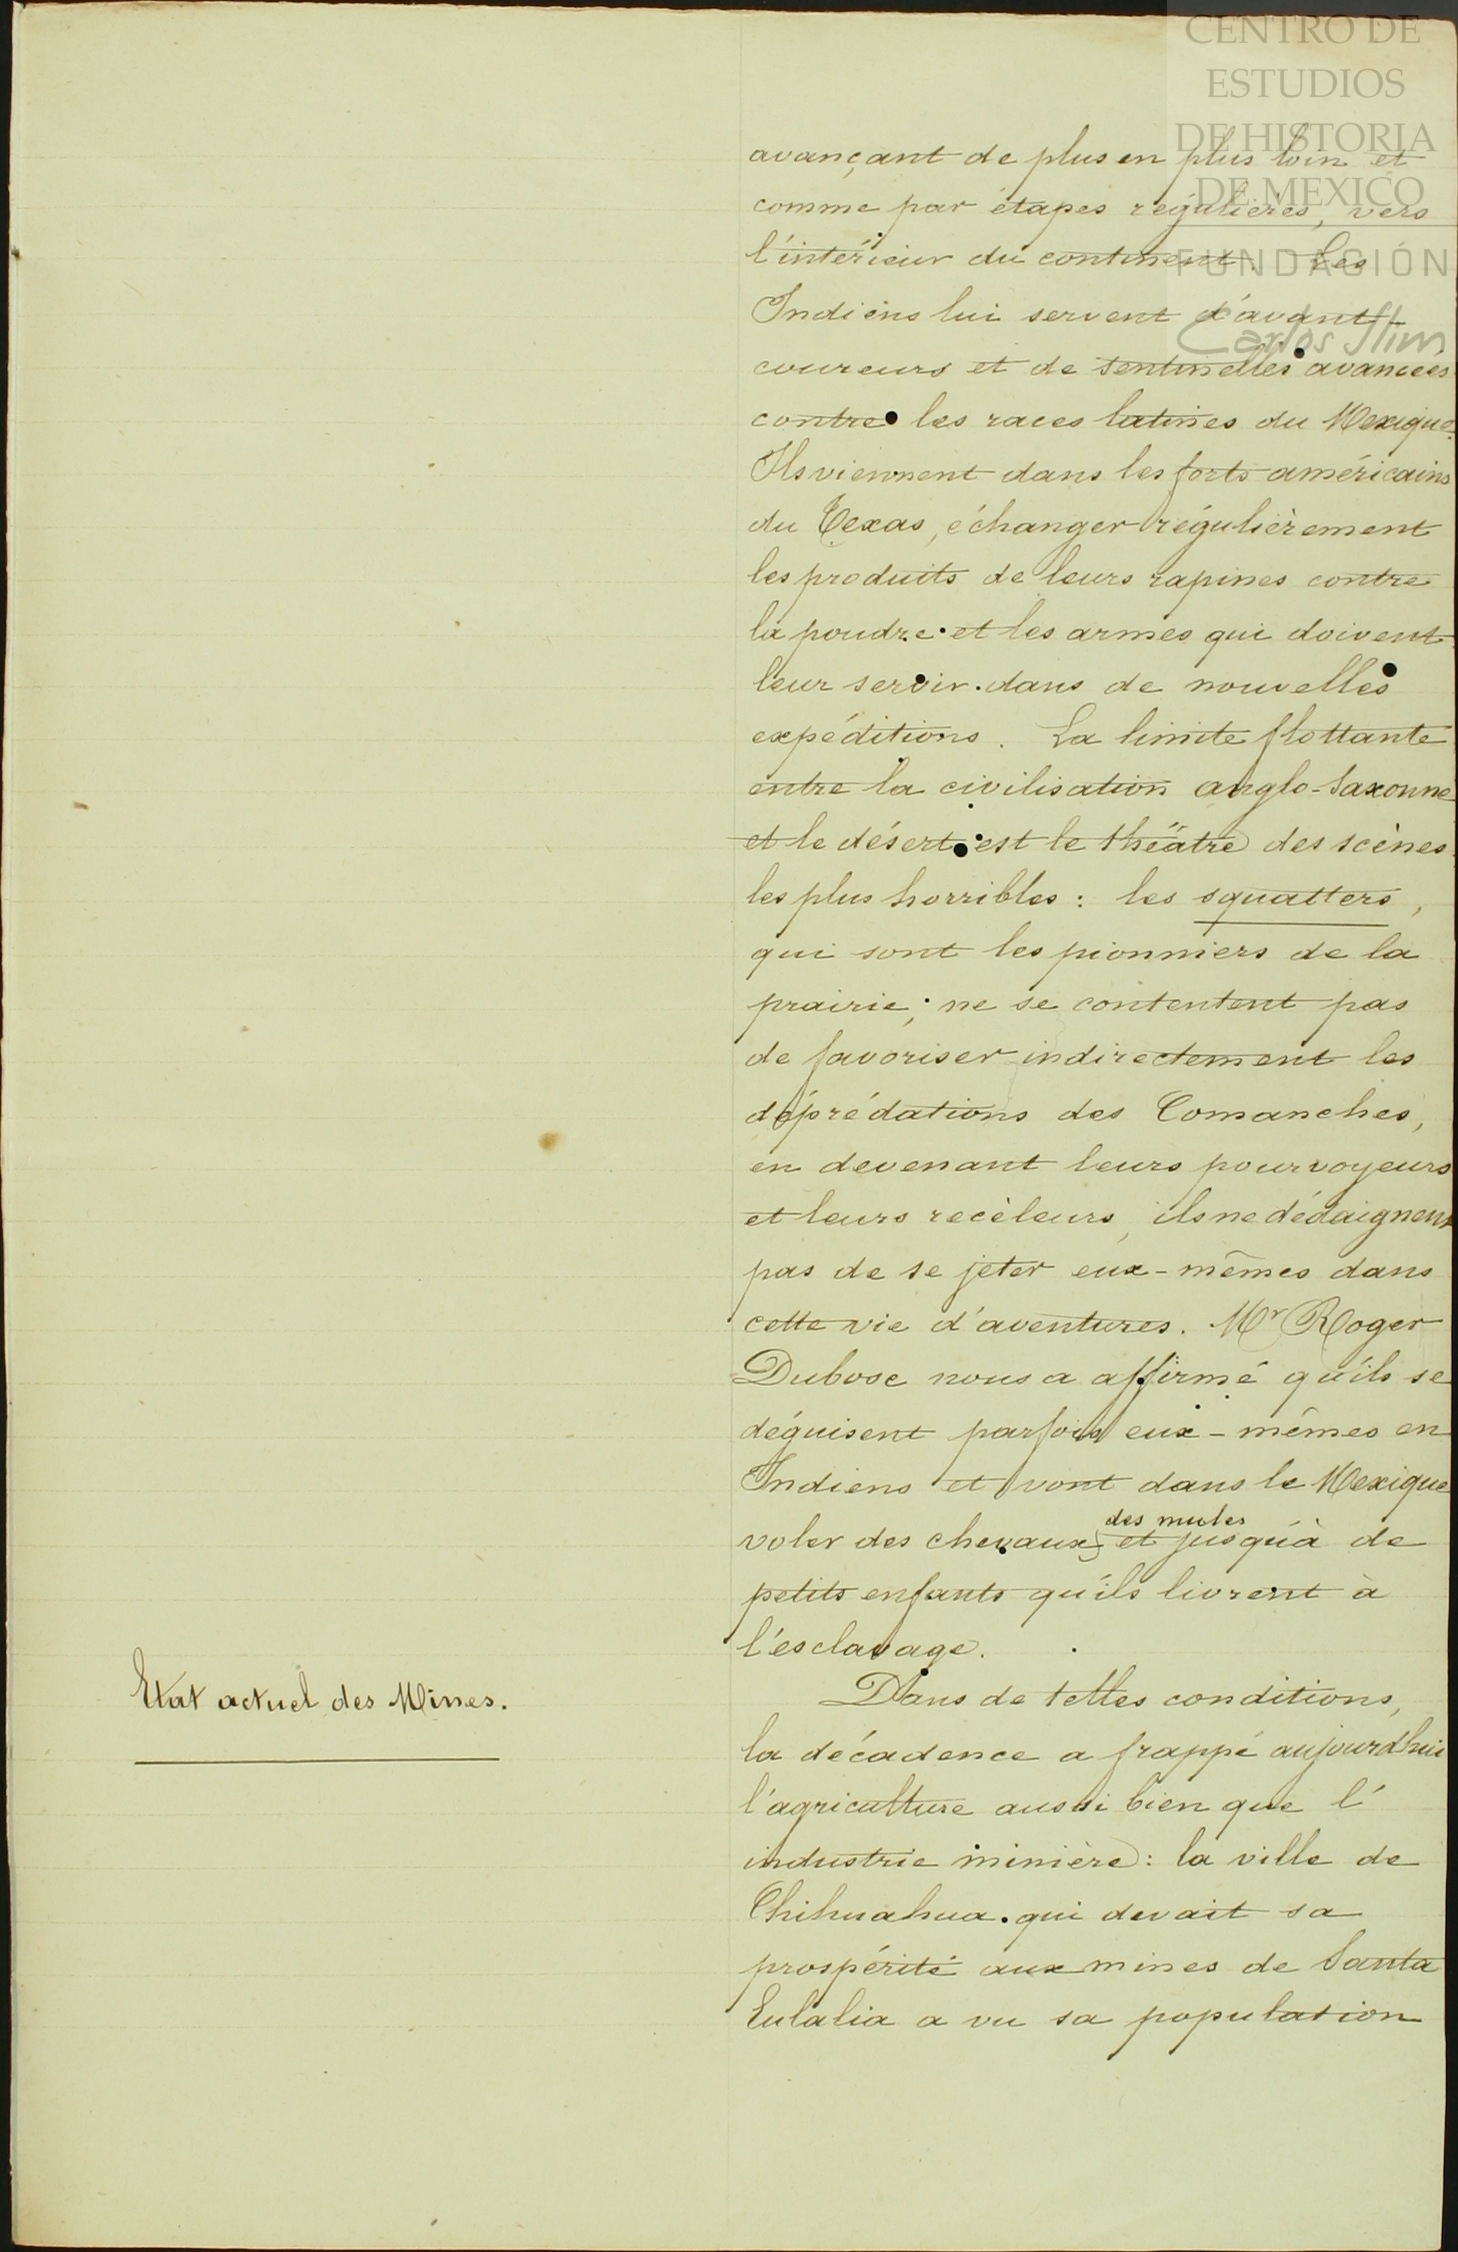 CENTRO DE
ESTUDIOS
DE HISTORIA
DE MEXICO
FUNDACIÓN
Carlos Slim
avançant de plus en plus loin et
comme par étapes régulières, vers
l'intérieur du continent. Les
Indiens lui servent d'avant-
coureurs et de sentinelles avancées
contre les races latines du Mexique.
Ils viennent dans les forts américains
du Texas, échanger régulièrement
les produits de leurs rapines contre
la poudre et les armes qui doivent
leur servir dans de nouvelles
expéditions. La limite flottante
entre la civilisation anglo-saxonne
et le désert est le théâtre des scènes
les plus horribles : les squatters,
qui sont les pionniers de la
prairie, ne se contentent pas
de favoriser indirectement les
déprédations des Comanches,
en devenant leurs pourvoyeurs
et leurs recèleurs, ils ne dédaignent
pas de se jeter eux-mêmes dans
cette vie d'aventures. Mr Roger
Dubosc nous a affirmé qu'ils se
déguisent parfois eux-mêmes en
Indiens et vont dans le Mexique
des mules
voler des chevaux, et jusqu'à de
petits enfants qu'ils livrent à
l'esclavage.
Etat actuel des Mines.
Dans de telles conditions,
la décadence a frappé aujourd'hui
l'agriculture aussi bien que l'
industrie minière : la ville de
Chihuahua qui devait sa
prospérité aux mines de Santa
Eulalia a vu sa population